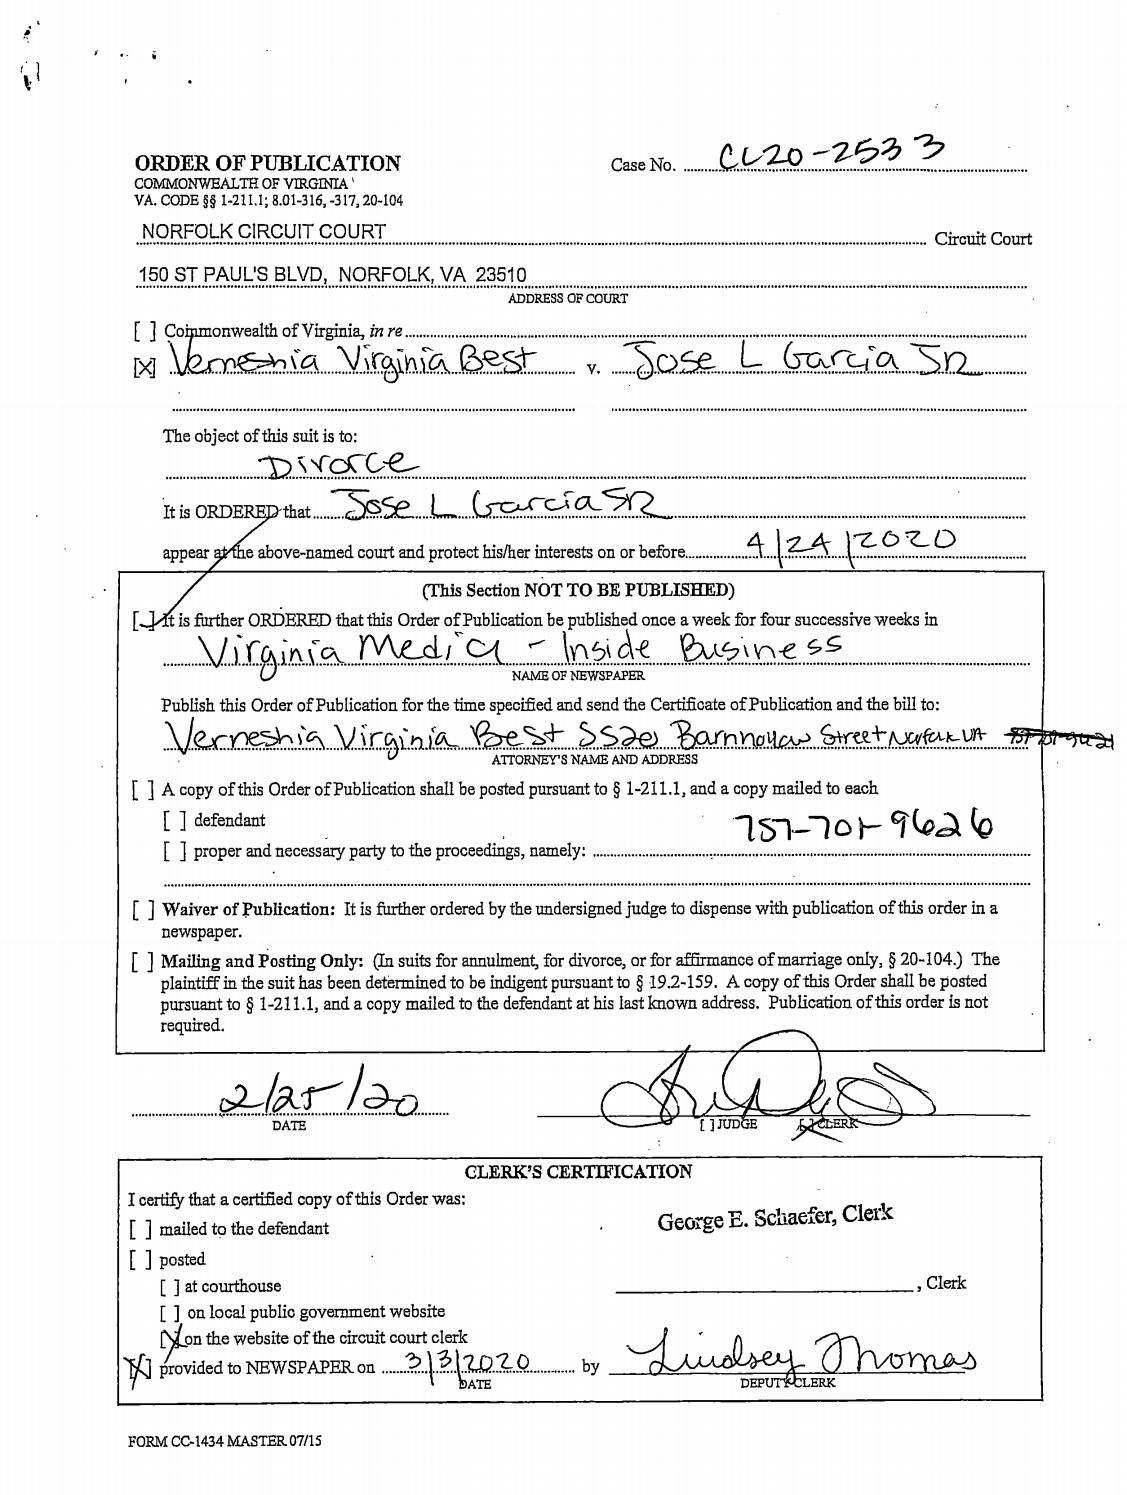 ORDER OF PUBLICATION
Case No. CL20-2533
COMMONWEALTH OF VIRGINIA
VA. CODE §§ 1-211.1; 8.01-316, -317, 20-104
NORFOLK CIRCUIT COURT Circuit Court
150 ST PAUL'S BLVD, NORFOLK, VA 23510
ADDRESS OF COURT
[ ] Commonwealth of Virginia, in re
[X] Verneshia Virginia Best v. Jose L Garcia SR
The object of this suit is to:
Divorce
It is ORDERED that Jose L Garcia SR
appear at the above-named court and protect his/her interests on or before 4/24/2020
(This Section NOT TO BE PUBLISHED)
[✓] It is further ORDERED that this Order of Publication be published once a week for four successive weeks in
Virginia Media - Inside Business
NAME OF NEWSPAPER
Publish this Order of Publication for the time specified and send the Certificate of Publication and the bill to:
Verneshia Virginia Best Street Norfolk VA
ATTORNEY'S NAME AND ADDRESS
[ ] A copy of this Order of Publication shall be posted pursuant to § 1-211.1, and a copy mailed to each
[ ] defendant
757-701-9626
[ ] proper and necessary party to the proceedings, namely:
[ ] Waiver of Publication: It is further ordered by the undersigned judge to dispense with publication of this order in a
newspaper.
[ ] Mailing and Posting Only: (In suits for annulment, for divorce, or for affirmance of marriage only, § 20-104.) The
plaintiff in the suit has been determined to be indigent pursuant to § 19.2-159. A copy of this Order shall be posted
pursuant to § 1-211.1, and a copy mailed to the defendant at his last known address. Publication of this order is not
required.
2/25/20
DATE
[ ] JUDGE [X] CLERK
CLERK'S CERTIFICATION
I certify that a certified copy of this Order was:
[ ] mailed to the defendant
George E. Schaefer, Clerk
[ ] posted
[ ] at courthouse
, Clerk
[ ] on local public government website
[X] on the website of the circuit court clerk
[X] provided to NEWSPAPER on 3/3/2020 by Lindsey Thomas
DATE
DEPUTY CLERK
FORM CC-1434 MASTER 07/15